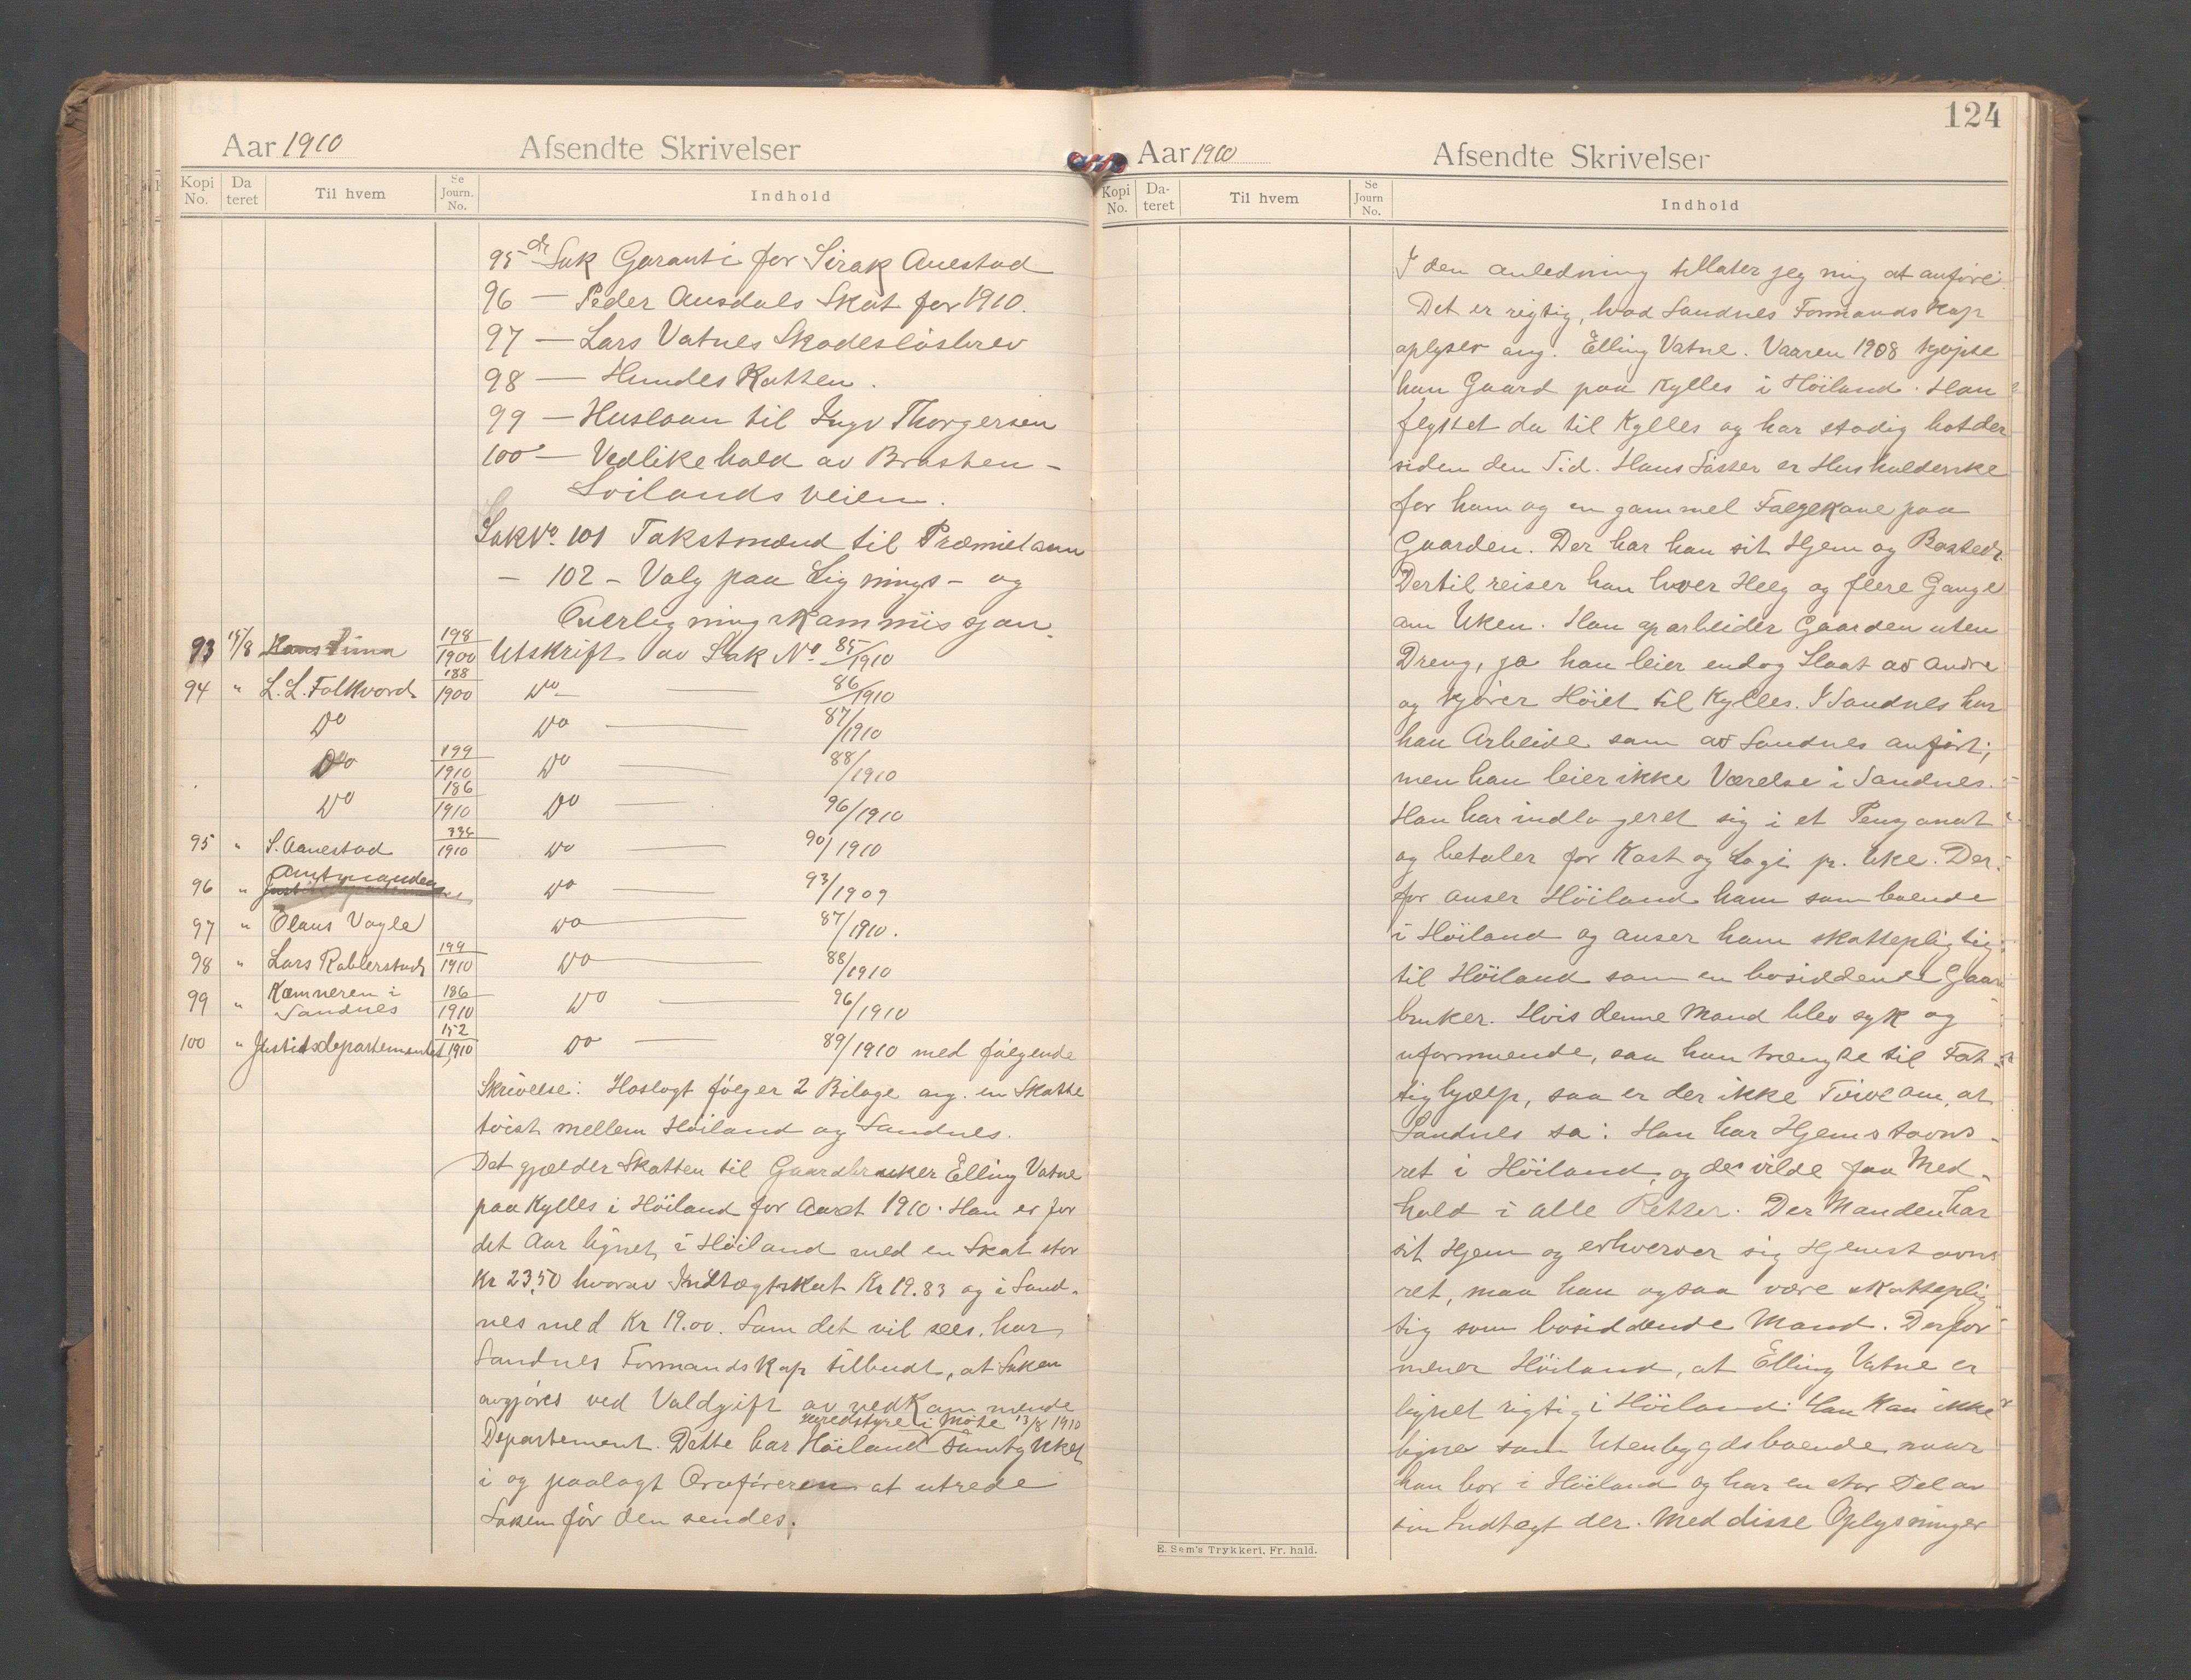 Aar 1910 Afsendte Skrivelser
Kopi No. Da teret Til hvem Se Journ. No. Indhold
95 de Sak Garanti for Sirak Auestad
96 — Peder Ausdals Skat for 1910.
97 — Lars Vatnes Skadesløsbrev
98 — Hundeskatten.
99 — Huslaan til Ingv Thorgersen
100 — Vedlikehold av Brasten-
Soilandsveien.
Sak No. 101 Takstmænd til Præmielaan
— 102 - Valg paa Lignings- og
Overligningskommissjon.
93 15/8 Hans Sima 198/1900 Utskrift av Sak No 85/1910
94 " L. L. Folkvord 188/1900 Do — 86/1910
Do Do — 87/1910
Do 199/1910 Do — 88/1910
Do 186/1910 Do — 96/1910
95 " S. Aanestad 334/1910 Do — 90/1910
96 " Amtmanden Do — 93/1909
97 " Olaus Vagle Do — 87/1910.
98 " Lars 199/1910 Do — 88/1910
99 " Kæmneren i Sandnes 186/1910 Do — 96/1910
100 " Justitsdepartementet 152/1910 Do — 89/1910 med følgende
Skrivelse: Hoslagt følger 2 Bilage ang. en Skatte
tvist mellem Høiland og Sandnes.
Det gjælder Skatten til Gaardbruker Elling Vatne
paa Kylles i Høiland for Aaret 1910. Han er for
det Aar lignet i Høiland med en Skat stor
Kr 23,50 hvorav Indtægtsskat Kr 19.83 og i Sand-
nes med Kr 19.00. Som det vil sees, har
Sandnes Formandskap tilbudt, at Saken
avgjøres ved Valdgift av vedkommende
herredstyre i Møte 13/8 1910
Departement. Dette har Høiland samtykket
i og paalagt Ordføreren at utrede
Saken før den sendes.
124
Aar 1910 Afsendte Skrivelser
Kopi No. Da- teret Til hvem Se Journ No. Indhold
I den anledning tillater jeg mig at anføre:
Det er rigtig, hvad Sandnes Formandskap
oplyser ang. Elling Vatne. Vaaren 1908 kjøpte
han Gaard paa Kylles i Høiland. Han
flyttet da til Kylles og har stadig bot der
siden den Tid. Hans Søster er Husholderske
for ham og en gammel Folgekone paa
Gaarden. Der har han sit Hjem og Bosted.
Dertil reiser han hver Helg og flere Gange
om Uken. Han oparbeider Gaarden uten
Dreng, ja han leier endog Slaat av andre
og kjører Høiet til Kylles. I Sandnes har
han Arbeide som av Sandnes anført;
men han leier ikke Værelse i Sandnes.
Han har indlogeret sig i et Pensjonat
og betaler for Kost og Logi pr. Uke. Der-
for anser Høiland ham som boende
i Høiland og anser ham skattepligtig
til Høiland som en bosiddende Gaard
bruker. Hvis denne Mand blev syk og
uformuende, saa han trængte til Fat-
tighjælp, saa er der ikke Tvivl om, at
Sandnes sa: Han har Hjemstavns-
ret i Høiland, og de vilde faa Med-
hold i alle Retter. Der Manden har
sit Hjem og erhverver sig Hjemstavns
ret, maa han ogsaa være skatteplig
tig som bosiddende Mand. Derfor
mener Høiland, at Elling Vatne er
lignet rigtig i Høiland. Han kan ikke
lignes som Utenbygdsboende naar
han bor i Høiland og har en stor Del av
sin Indtægt der. Med disse Oplysninger
E. Sem's Trykkeri, Fr. hald.